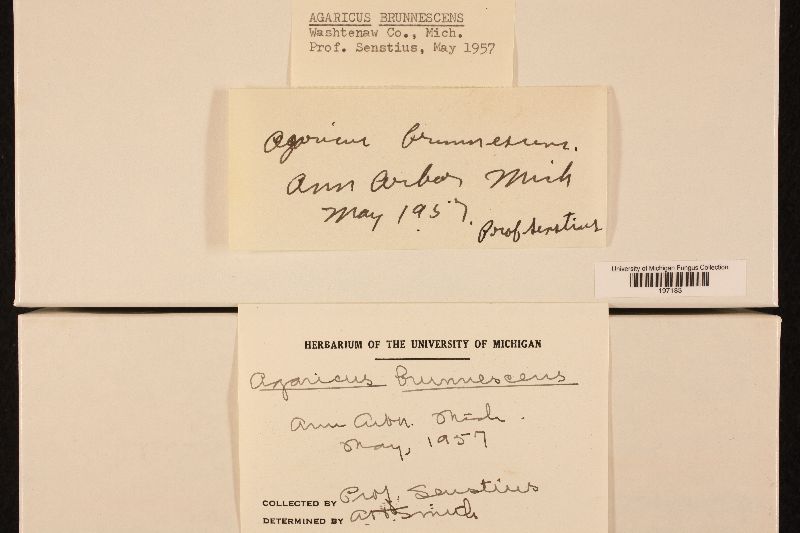 AGARICUS BRUNNESCENS
Washtenaw Co., Mich.
Prof. Senstius, May 1957
Agaricus brunnescens.
Ann Arbor Mich
May 1957.
Prof Senstius
University of Michigan Fungus Collection
197185
HERBARIUM OF THE UNIVERSITY OF MICHIGAN
Agaricus brunnescens
Ann Arbr. Mich.
May, 1957
COLLECTED BY Prof. Senstius
DETERMINED BY A.H. Smith